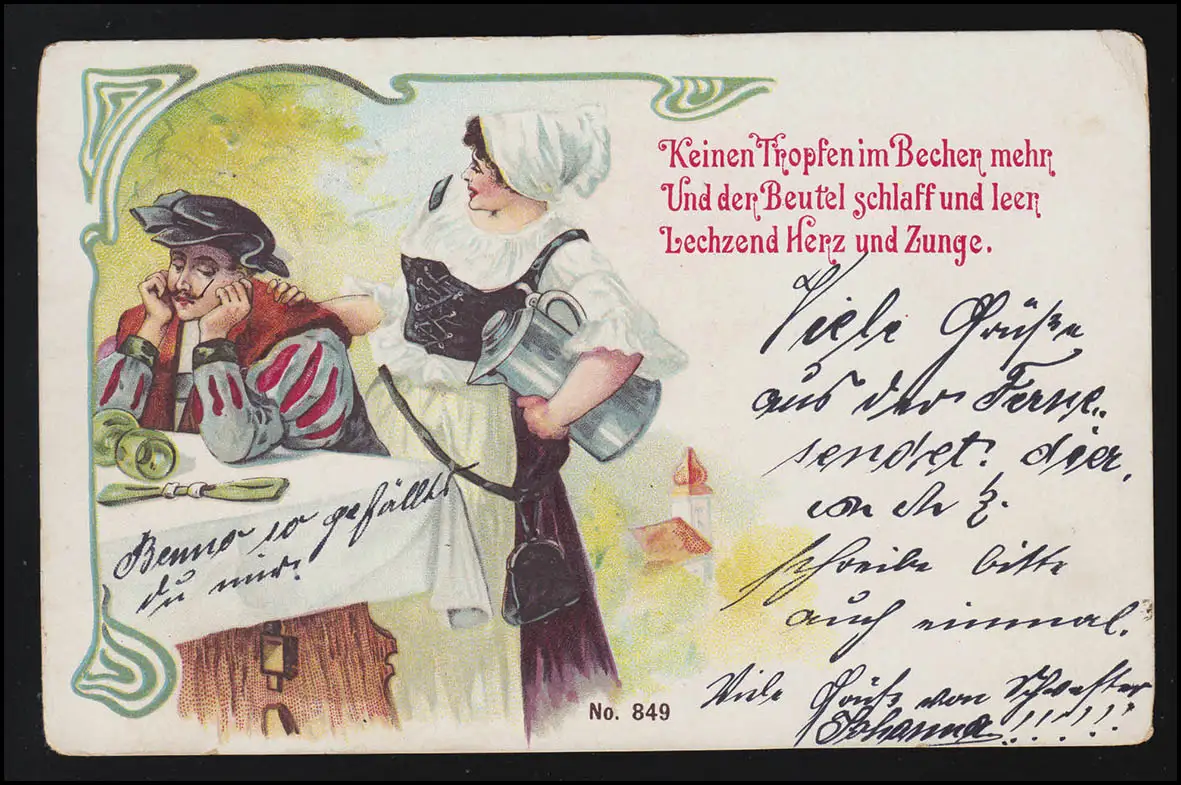 Keinen Tropfen im Becher mehr
Und der Beutel schlaff und leer
Lechzend Herz und Zunge.
Viele Grüße
aus der Ferne
sendet dier
schreibe bitte
auch einmal.
Viele Grüße von Schwester
Johanna!!!!!!
Benno so gefällst
du mir.
No. 849